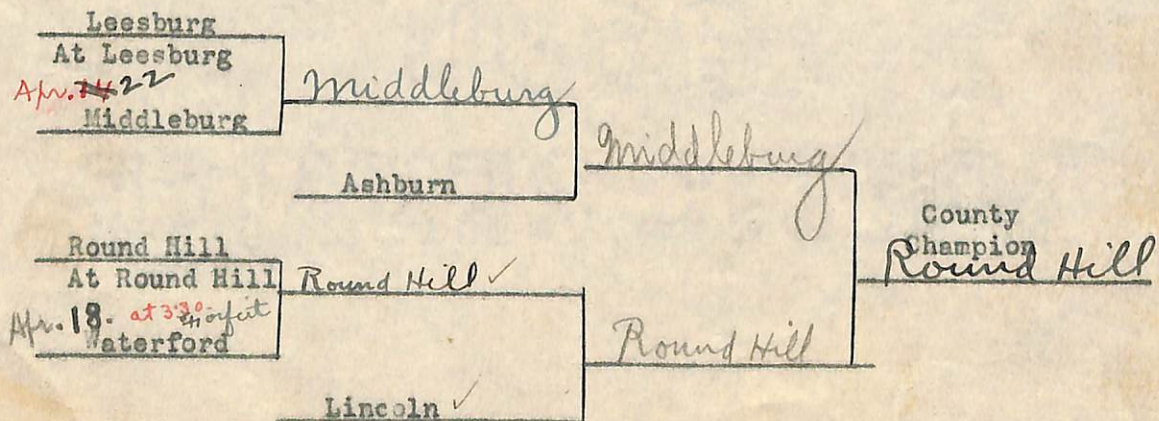 Leesburg
At Leesburg
Apr. 14 22
Middleburg
Middleburg
Ashburn
Middleburg
Round Hill
At Round Hill
Apr. 18. at 3:30 forfeit
Waterford
Round Hill ✓
Lincoln ✓
Round Hill
County
Champion
Round Hill